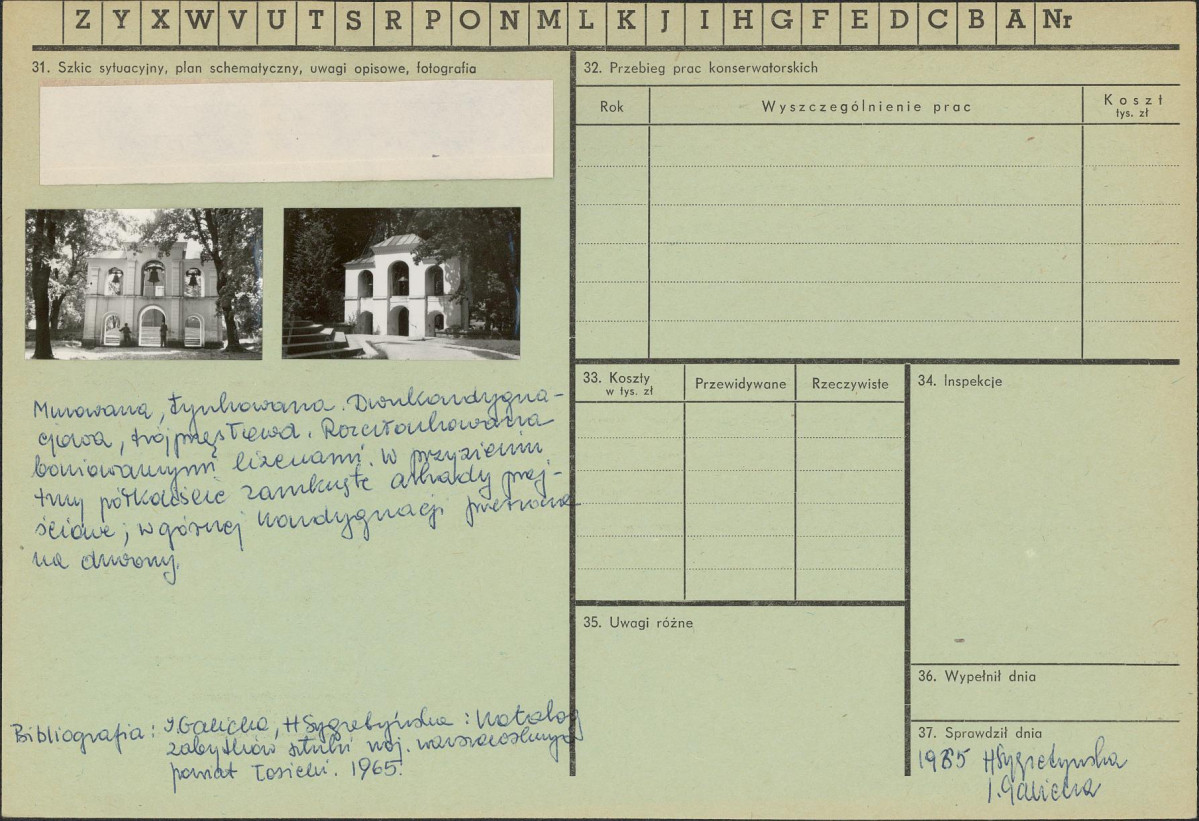 Z Y X W V U T S R P O N M L K J I H G F E D C B A Nr
31. Szkic sytuacyjny, plan schematyczny, uwagi opisowe, fotografia
Murowana, tynkowana. Dwukondygna-
cjowa, trójprzęsłowa. Rozczłonkowana
boniowanymi lizenami. W przyziemiu
trzy półkoliście zamknięte arkady przej-
ściowe; w górnej kondygnacji przezrocza
na dzwony.
Bibliografia: I. Galicka, H Sygietyńska: Katalog
zabytków sztuki woj. warszawskiego
powiat Łosicki. 1965.
32. Przebieg prac konserwatorskich
Rok
Wyszczególnienie prac
Koszt
tys. zł
33. Koszty
w tys. zł
Przewidywane
Rzeczywiste
34. Inspekcje
35. Uwagi różne
36. Wypełnił dnia
37. Sprawdził dnia
1965 H Sygietyńska
I. Galicka